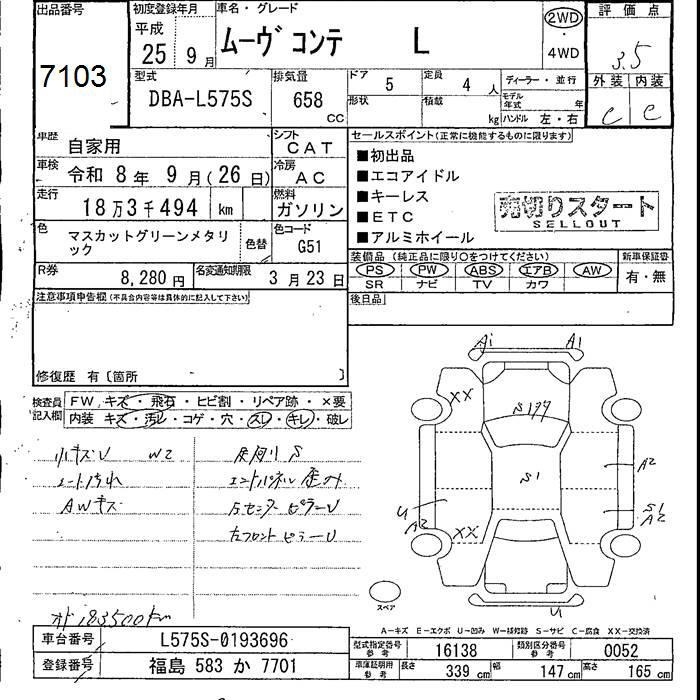 出品番号
7103
初度登録年月
平成
25 9月
車名・グレード
ムーヴ コンテ L
2WD
・
4WD
評価点
3.5
外装 内装
C C
型式
DBA-L575S
排気量
658
CC
ドア
5
形状
定員
4人
積載
kg
ディーラー・並行
モデル年式 年
ハンドル 左・右
車歴
自家用
シフト
CAT
車検
令和 8年 9月(26日)
冷房
AC
走行
18万3千494 km
燃料
ガソリン
色
マスカットグリーンメタリック
色替
色コード
G51
R券
8,280円
名変通知期限
3月23日
セールスポイント(正常に機能するものに限ります)
■初出品
■エコアイドル
■キーレス
■ETC
■アルミホイール
売切りスタート
SELLOUT
装備品(純正品に限り○をつけてください)
PS PW ABS エアB AW
SR ナビ TV カワ
新車保証書
有・無
後日品
注意事項申告欄(不具合内容等は具体的に記入して下さい)
修復歴 有〔箇所 〕
検査員記入欄
FW キズ・飛石・ヒビ割・リペア跡・×要
内装 キズ・汚レ・コゲ・穴・スレ・キレ・破レ
小キズU W2
シート汚れ
AWキズ
足廻り S
エンドパネル歪み
左フロントピラーU
オド183500km
A1 A1
XX
S177
S1
A2
U
A2
S1
A2
XX
U
スペア
A-キズ E-エクボ U-凹み W-補修跡 S-サビ C-腐食 XX-交換済
車台番号
L575S-0193696
登録番号
福島 583 か 7701
型式指定番号
参考
16138
類別区分番号
参考
0052
車庫証明用
参考
長さ 339cm
幅 147cm
高さ 165cm